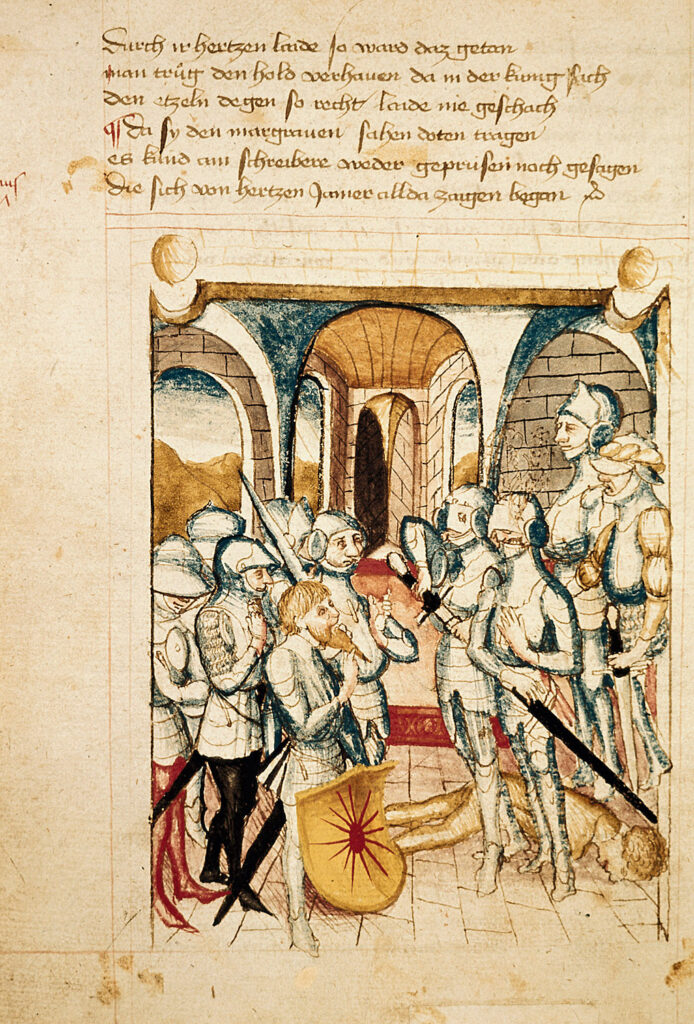 Durch ir hertzen laide so ward daz getan
man trůg den hold verhawen da in der kunig sich
den etzeln degen so recht laide nie geschach
¶ Da sy den margrauen sahen doten tragen
es kund ain schreibere weder geprüfen noch gesagen
die sich von hertzen Jamer allda zaigen began